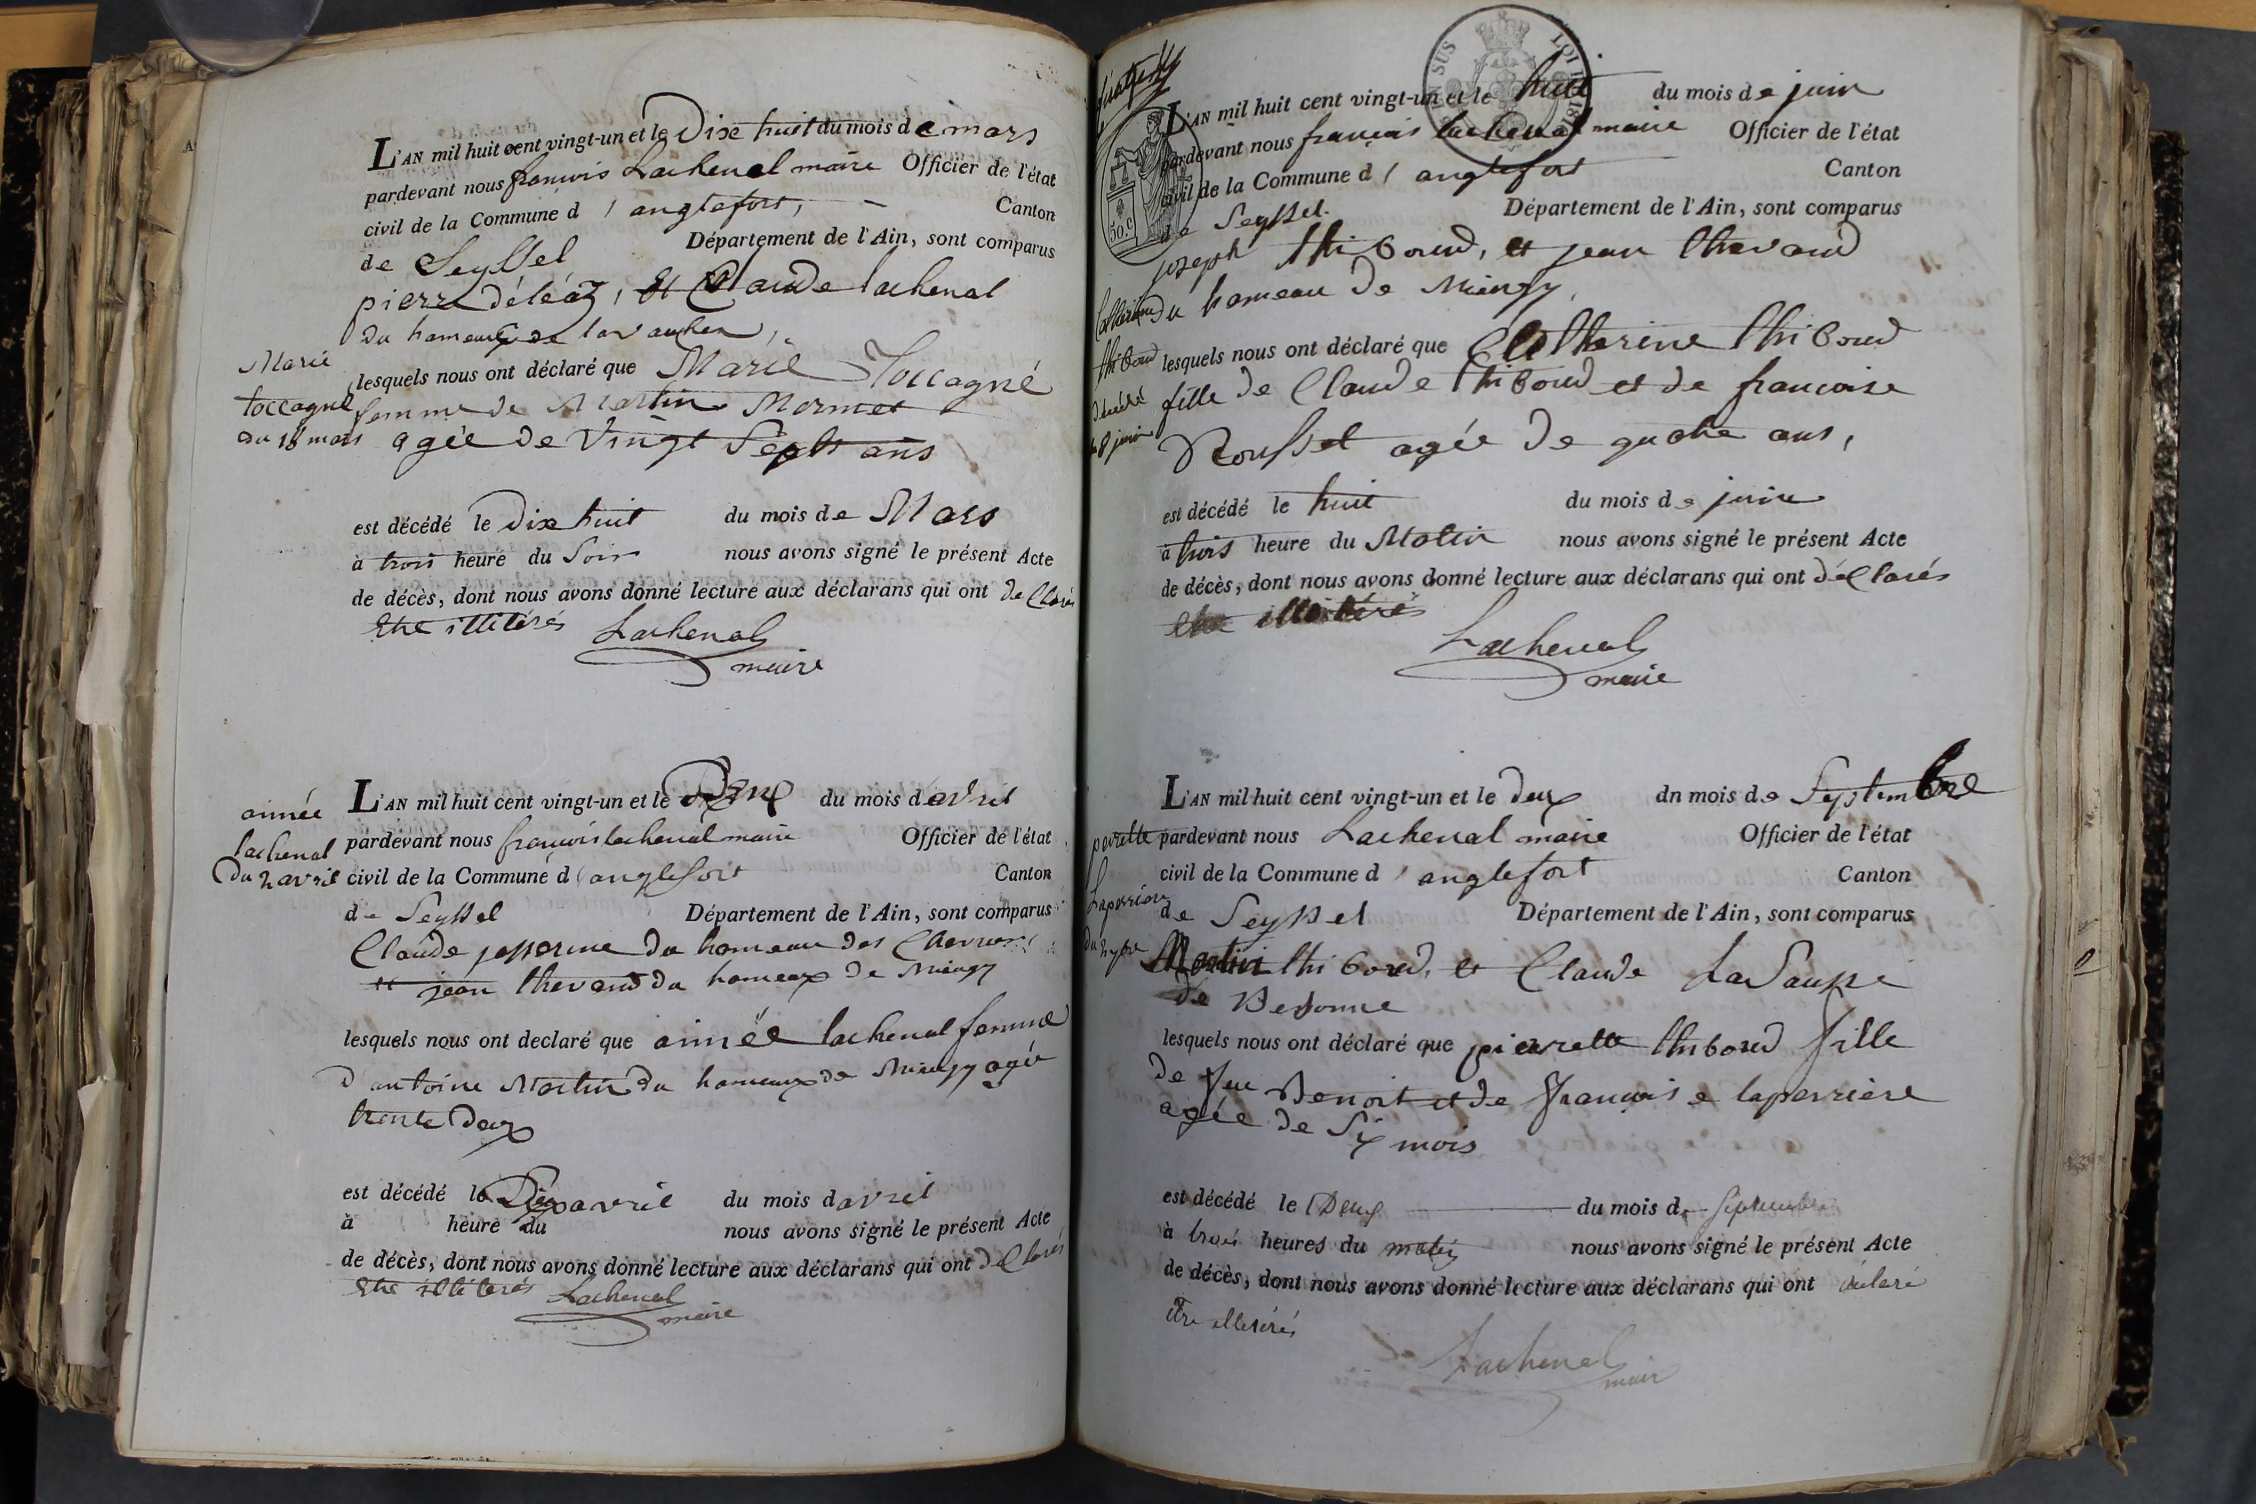 L'AN mil huit cent vingt-un et le Dix huit du mois de mars
pardevant nous françois Lachenal maire Officier de l'état
civil de la Commune d'anglefort, Canton
de Seyssel Département de l'Ain, sont comparus
pierre déléaz, et Claude lachenal
du hameaux de
Marie
toccagné
du 18 mars
lesquels nous ont déclaré que Marie Toccagné
femme de Martin Mermet
agée de Vingt Sept ans
est décédé le Dix huit du mois de Mars
à trois heure du Soir nous avons signé le présent Acte
de décès, dont nous avons donné lecture aux déclarans qui ont declarés
Etre illitérés Lachenal
maire
aimée
lachenal
Du 2 avril
L'AN mil huit cent vingt-un et le Deux du mois d'avril
pardevant nous françois lachenal maire Officier de l'état
civil de la Commune d'anglefort Canton
de Seyssel Département de l'Ain, sont comparus
Claude jasserme du hameau des
et jean thevand du hameaux de Mieugy
lesquels nous ont declaré que aimée lachenal femme
d'antoine Martin du hameaux de Mieugy agée
trente Deux
est décédé le Deux avril du mois d'avril
à heure du nous avons signé le présent Acte
de décès, dont nous avons donné lecture aux déclarans qui ont declarés
Etre illitérés Lachenal
maire
L'AN mil huit cent vingt-un et le huit du mois de juin
pardevant nous françois lachenal maire Officier de l'état
civil de la Commune d'anglefort Canton
de Seyssel. Département de l'Ain, sont comparus
50.c
joseph thiboud, et jean thevand
du hameau de Mieugy,
Catherine
thiboud
décédé
le 8 juin
lesquels nous ont déclaré que Catherine thiboud
fille de Claude thiboud et de francoise
Rousset agée de quatre ans,
est décédé le huit du mois de juin
à trois heure du Matin nous avons signé le présent Acte
de décès, dont nous avons donné lecture aux déclarans qui ont déclarés
etre illitérés
Lachenal
maire
perrette
Laperriere
du 2 7bre
L'AN mil huit cent vingt-un et le deux dn mois de Septembre
pardevant nous Lachenal maire Officier de l'état
civil de la Commune d'anglefort Canton
de Seyssel Département de l'Ain, sont comparus
Martin thiboud, et Claude
de
lesquels nous ont déclaré que pierrette thiboud fille
de feu Benoit et de françoise laperriere
agée de Six mois
est décédé le Deux du mois de Septembre
à trois heures du matin nous avons signé le présent Acte
de décès, dont nous avons donné lecture aux déclarans qui ont déclaré
être illetérés
Lachenal
mair